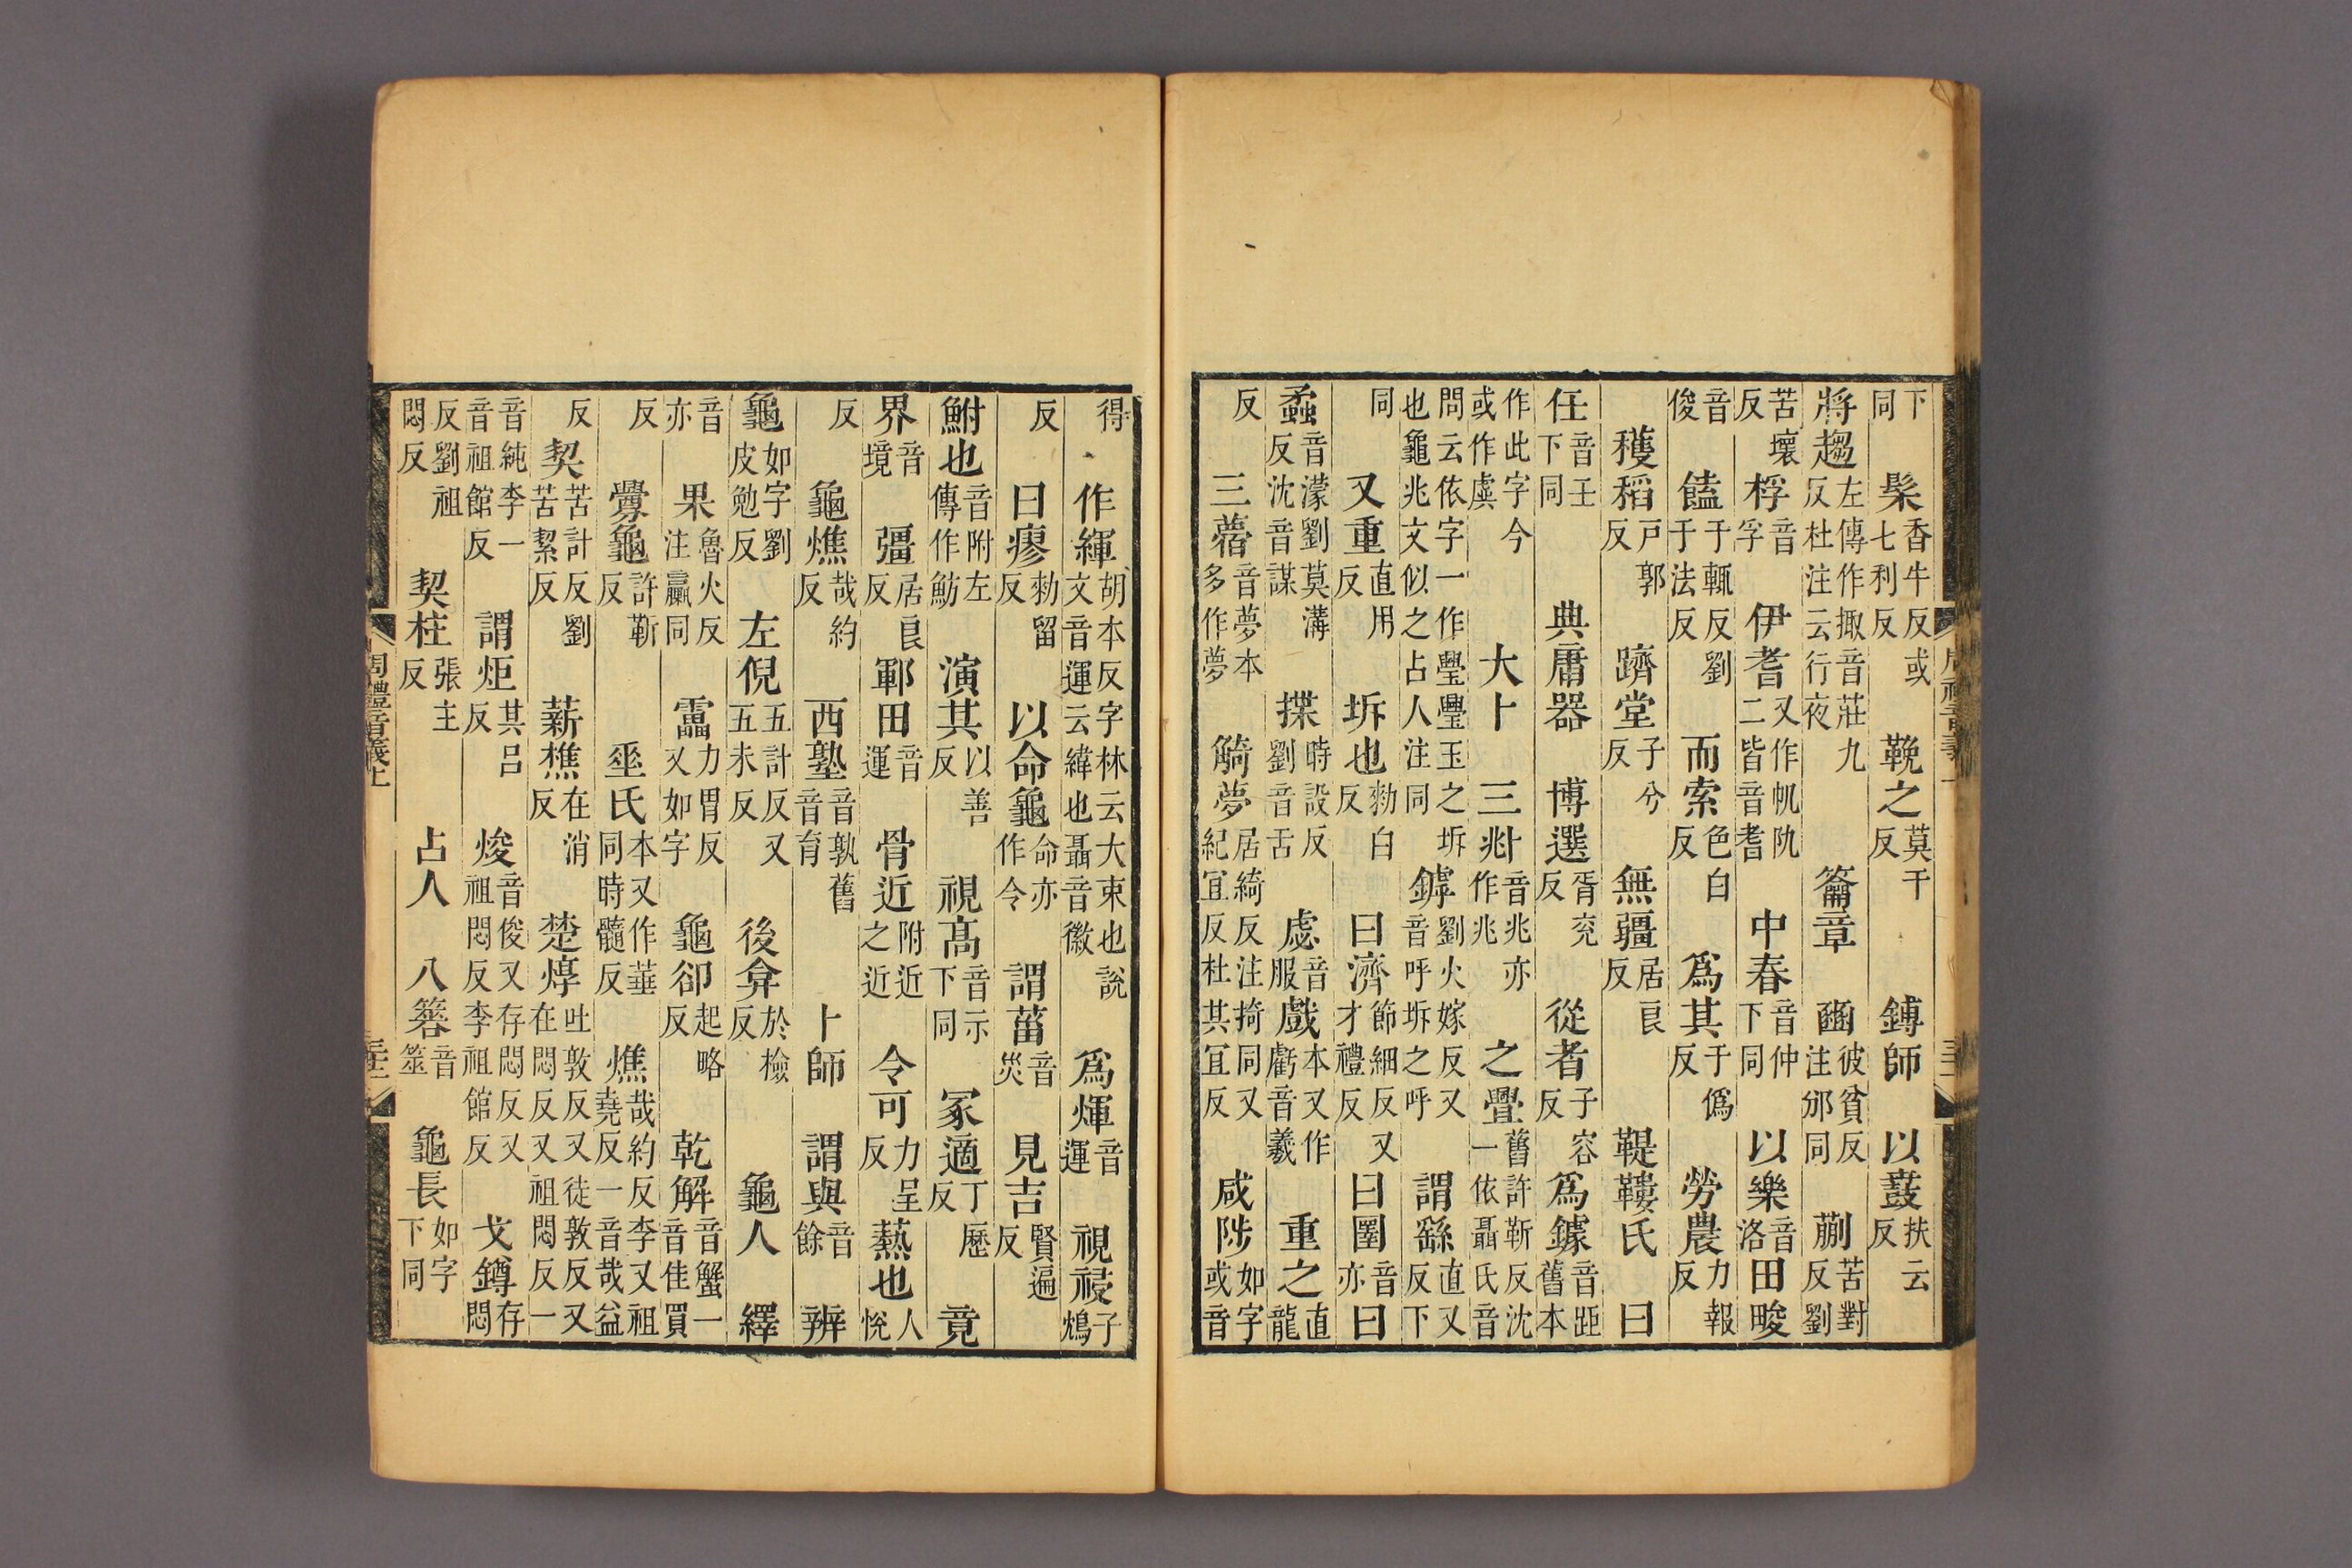 下同髤香牛反或七利反鞔之莫干反鎛師以鼖扶云反
將趨左傳作掫音莊九反杜注云行夜籥章豳彼貧反注邠同蒯苦對反劉
苦壞反桴音孚伊耆又作帆阠二皆音耆中春音仲下同以樂音洛田畯
音俊饁于輒反劉于法反而索色白反爲其于僞反勞農力報反
穫稻戶郭反躋堂子兮反無疆居良反鞮鞻氏曰
任音壬下同典庸器博選胥兖反從者子容反爲鐻音距舊本
作此字今或作虡大卜三𠧞音兆亦作兆之舋舊許靳反沈一依聶氏音
問云依字一作璺璺玉之坼也龜兆文似之占人注同罅劉火嫁反又音呼坼之呼謂繇直又反下
同又重直用反坼也勑白反曰濟節細反又才禮反曰圛音亦曰
蟊音濛劉莫溝反沈音謀揲時設反劉音舌虙音服戲本又作虧音羲重之直龍
反三𦿏音夢本多作夢觭夢居綺反注掎同又紀宜反杜其宜反咸陟如字或音
得作緷胡本反字林云大束也說文音運云緯也聶音徽爲煇音運視祲子鴆
反曰瘳勑留反以命龜命亦作令謂菑音災見吉賢遍反
鮒也音附左傳作魴演其以善反視高音示下同冢適丁歷反竟
界音境疆居良反鄆田音運骨近附近之近令可力呈反爇也人悅
反龜燋哉約反西塾音孰舊音育卜師謂與音餘辨
龜如字劉皮勉反左倪五計反又五未反後弇於檢反龜人繹
音亦果魯火反注蠃同靁力胃反又如字龜卻起略反乾解音蟹一音佳買
反釁龜許靳反菙氏本又作菙同時髓反燋哉約反李又祖堯反一音哉益
反契苦計反劉苦絜反薪樵在消反楚焞吐敦反又徒敦反又在悶反又祖悶反一
音純李一音祖館反謂炬其呂反焌音俊又存悶反又祖悶反李祖館反戈鐏存悶
反劉祖悶反契柱張主反占人八簭音筮龜長如字下同
周禮音義上